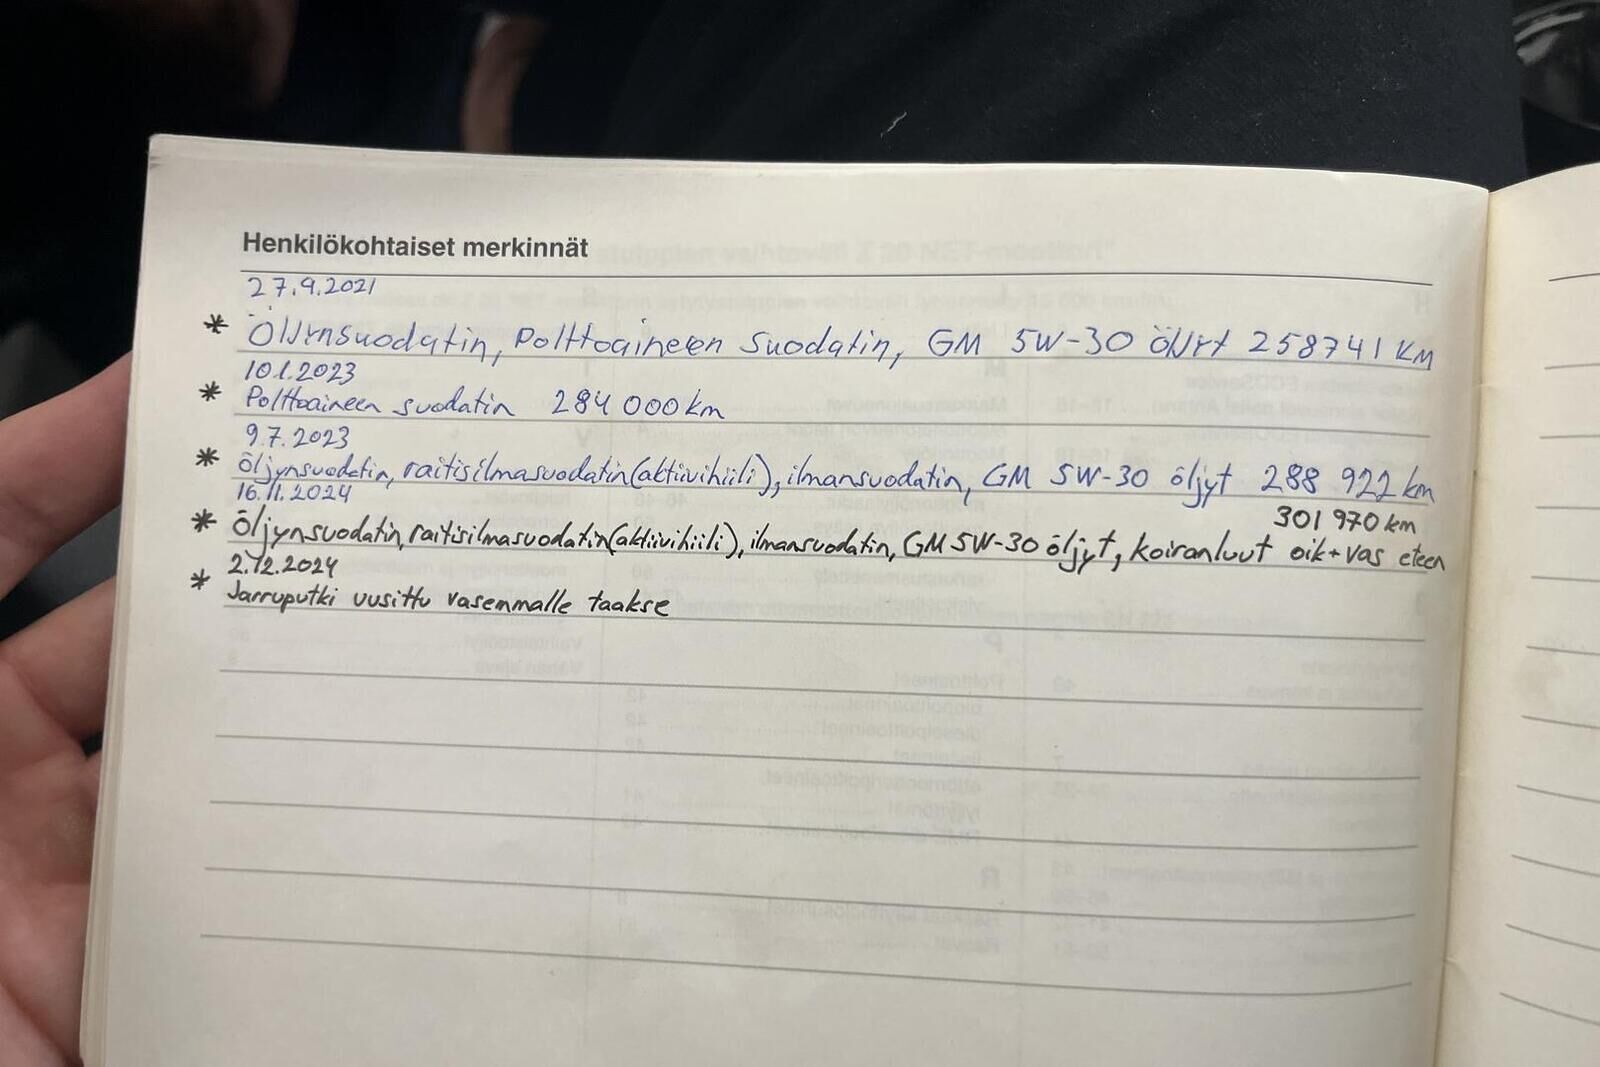 Henkilökohtaiset merkinnät
27.9.2021
* Öljynsuodatin, Polttoaineen Suodatin, GM 5W-30 öljyt 258741 KM
10.1.2023
* Polttoaineen suodatin 284 000 km
9.7.2023
* Öljynsuodatin, raitisilmasuodatin(aktiivihiili), ilmansuodatin, GM 5W-30 öljyt 288 922 km
16.11.2024
301 970 km
* Öljynsuodatin, raitisilmasuodatin(aktiivihiili), ilmansuodatin, GM 5W-30 öljyt, koiranluut oik+vas eteen
2.12.2024
* Jarruputki uusittu vasemmalle taakse